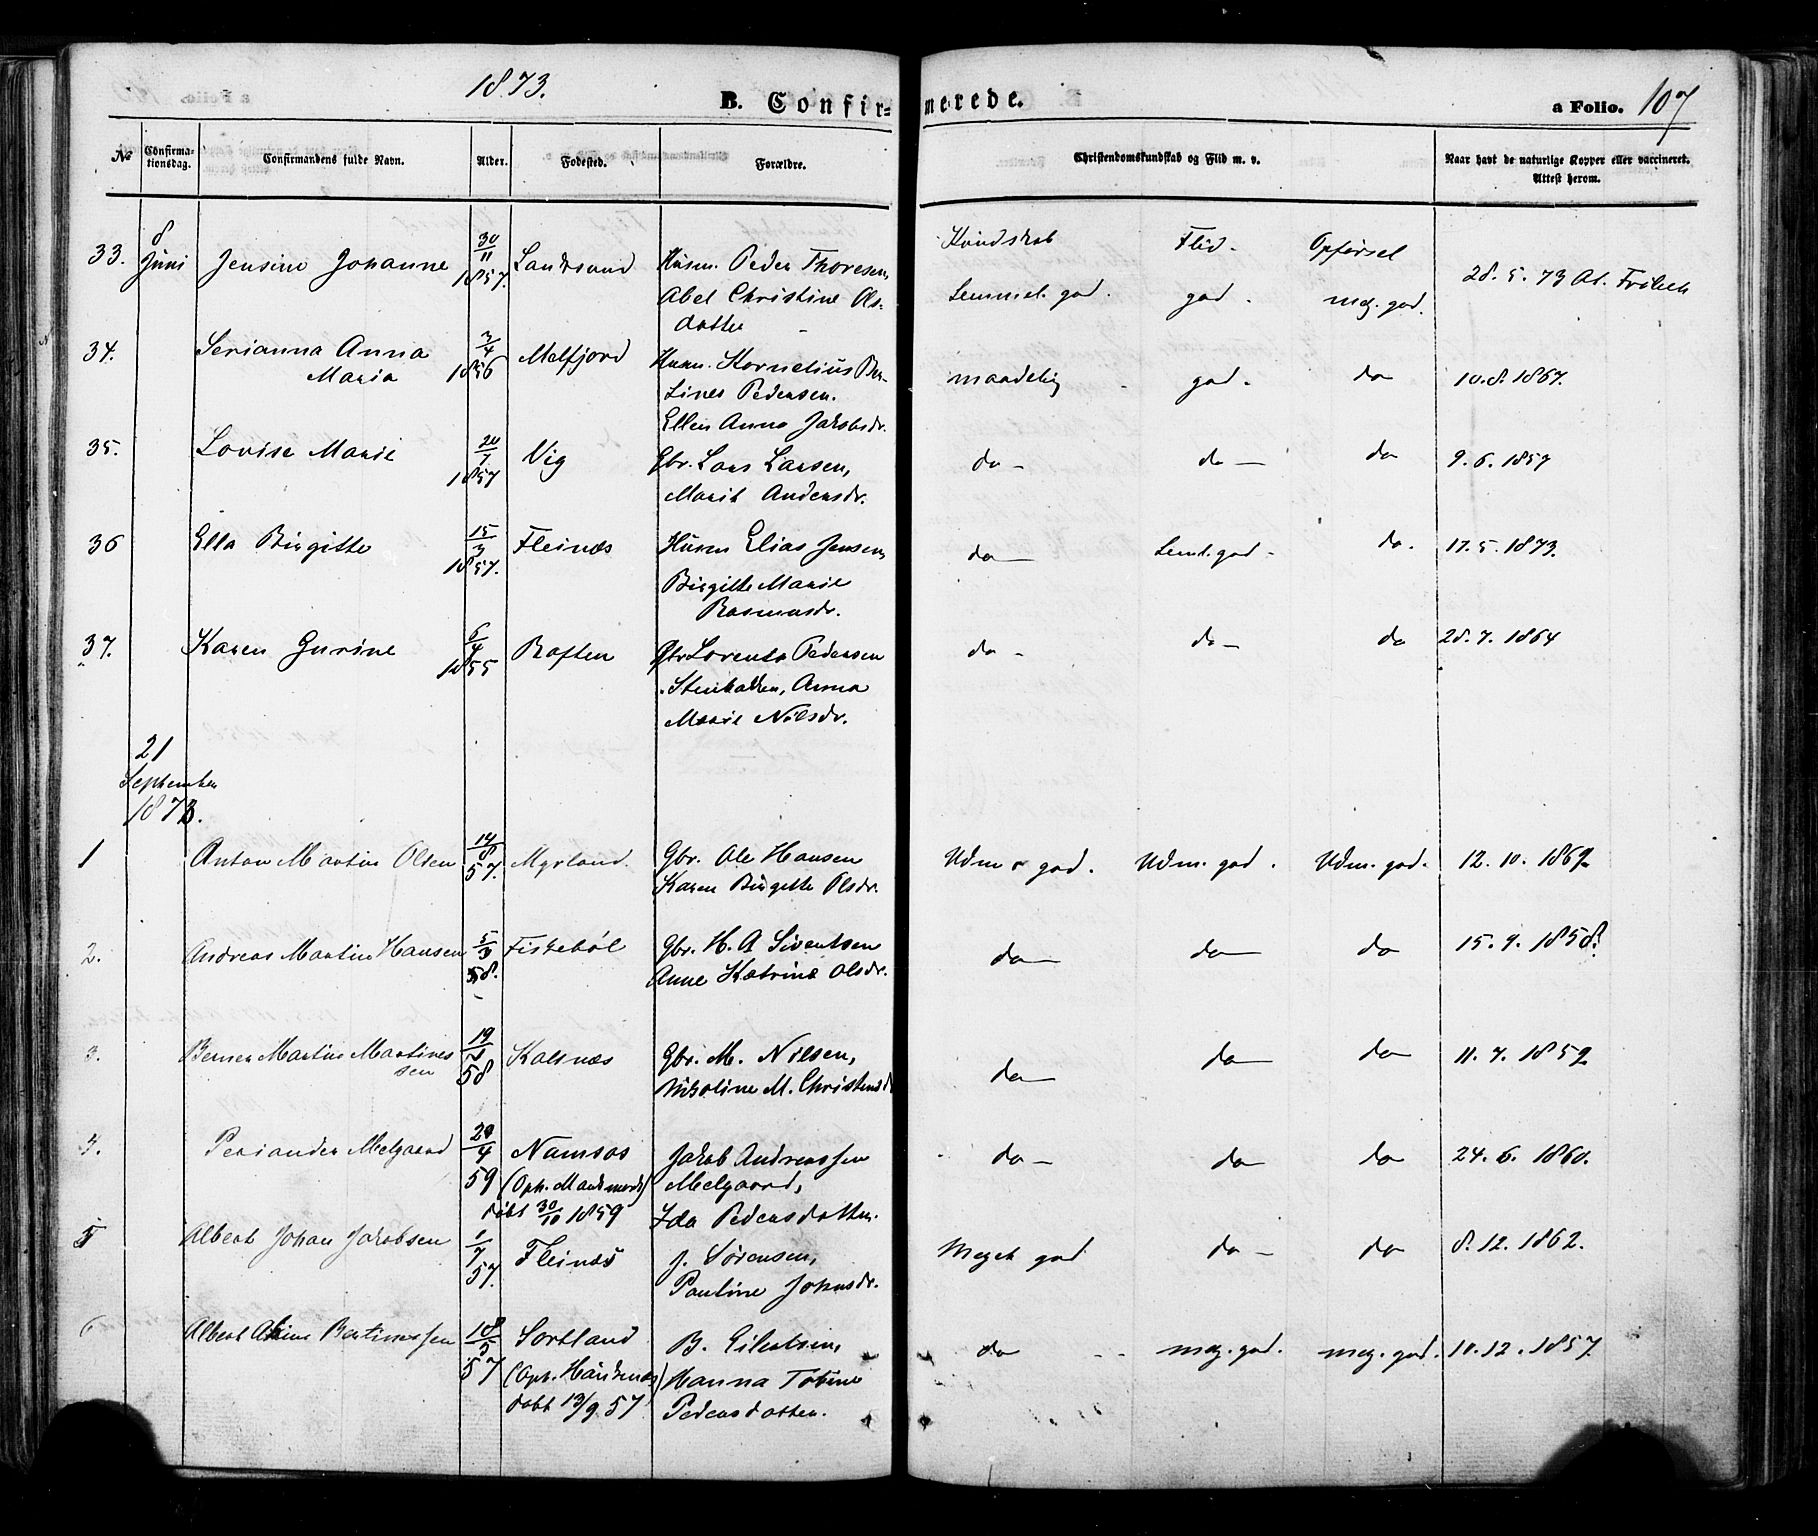 1873.
B. Confirmerede.
a Folio. 107
No Confirmationsdag. Confirmandens fulde Navn. Alder. Fødested. Forældre. Christendomskundskab og Flid m. v. Naar havt de naturlige Kopper eller vaccineret. Attest herom.
Kundskab Flid. Opførsel
33. 8 Juni Jensine Johanne 30/11 1857. Sandsund Husm. Peder Thoresen,
Abel Christine Ols-
datter
Temmel. god. god. meg. god. 28. 5. 73 At. Frölich
34. Serianna Anna
Maria 3/4 1856 Melfjord Husm. Kornelius Ber-
tines Pedersen.
Ellen Anna Jakobsdr.
maadelig god. do 10. 8. 1867.
35. Lovise Marie 20/1 1857 Vig Gbr. Lars Larsen,
Marit Andersdr.
do do do 9. 6. 1857
36 Ella Birgitte 15/3 1857. Fleinæs Husm Elias Jensen,
Birgitte Marie
Rasmusdr.
do Teml. god do. 17. 5. 1873.
37. Karen Gurine 6/4 1855 Raften Gbr Lorents Pedersen
Stenbakken, Anna
Marie Nilsdr.
do do do 28. 7. 1864
21
September
1873.
1 Anton Martin Olsen 14/8 57. Myrland. Gbr. Ole Hansen
Karen Birgitte Olsdr.
Udm. god. Udm. god. Udm. god. 12. 10. 1869
2. Andreas Martin Hansen 5/3 58. Fiskebøl Gbr. H. A Siventsen
Anne Katrine Olsdr.
do do do 15. 9. 1858.
3. Berner Martin Martines
sen 19/1 58 Kalsnæs Gbr. M. Nilsen,
Nikoline M. Christensd
do do do 11. 7. 1859
4. Periander Melgaard 20/4 59 Namsos Jakob Andreassen
(Oph. Marksmork) Melgaard,
døbt 30/10 1859 Ida Pedersdatter.
do do do 24. 6. 1860.
5 Albert Johan Jakobsen 1/7 57. Fleinæs J. Sørensen,
Pauline Johnsdr.
Meget god do do 8. 12. 1862.
6 Albert Bertinussen 18/5 57 Sortland B. Eilertsen,
(Oph. Haukenæs) Hanna Tobine
døbt 13/9 57 Pedersdatter.
do meg. god. meg. god. 10. 12. 1857.